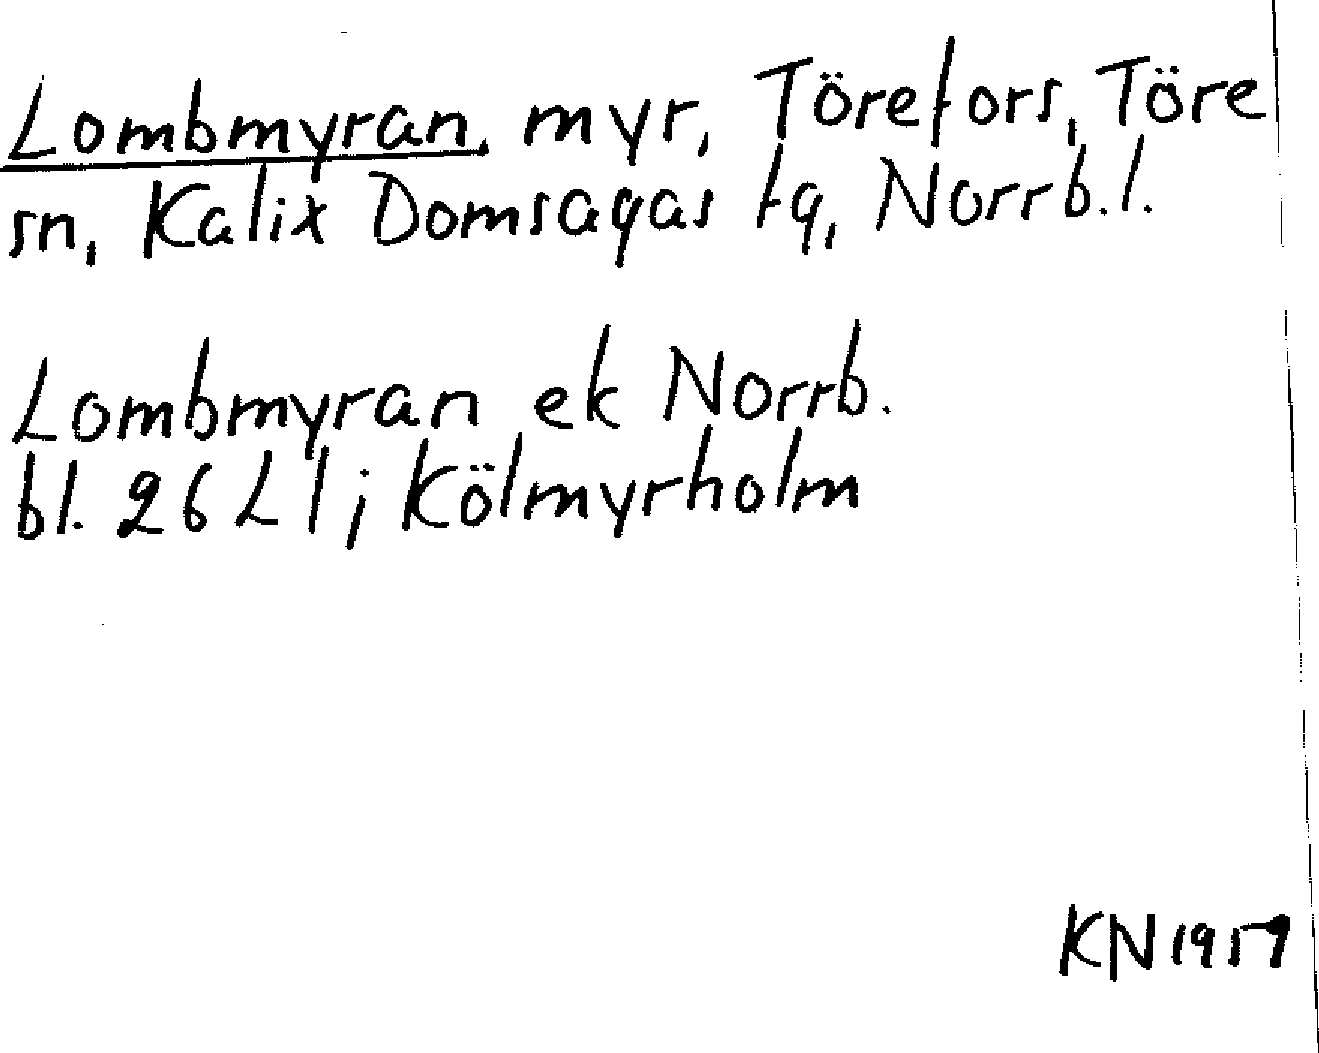 Lombmyran, myr, Törefors, Töre
sn, Kalix Domsagas tg, Norrb.l.
Lombmyran ek Norrb.
bl. 26 L l; Kölmyrholm
KN 1957